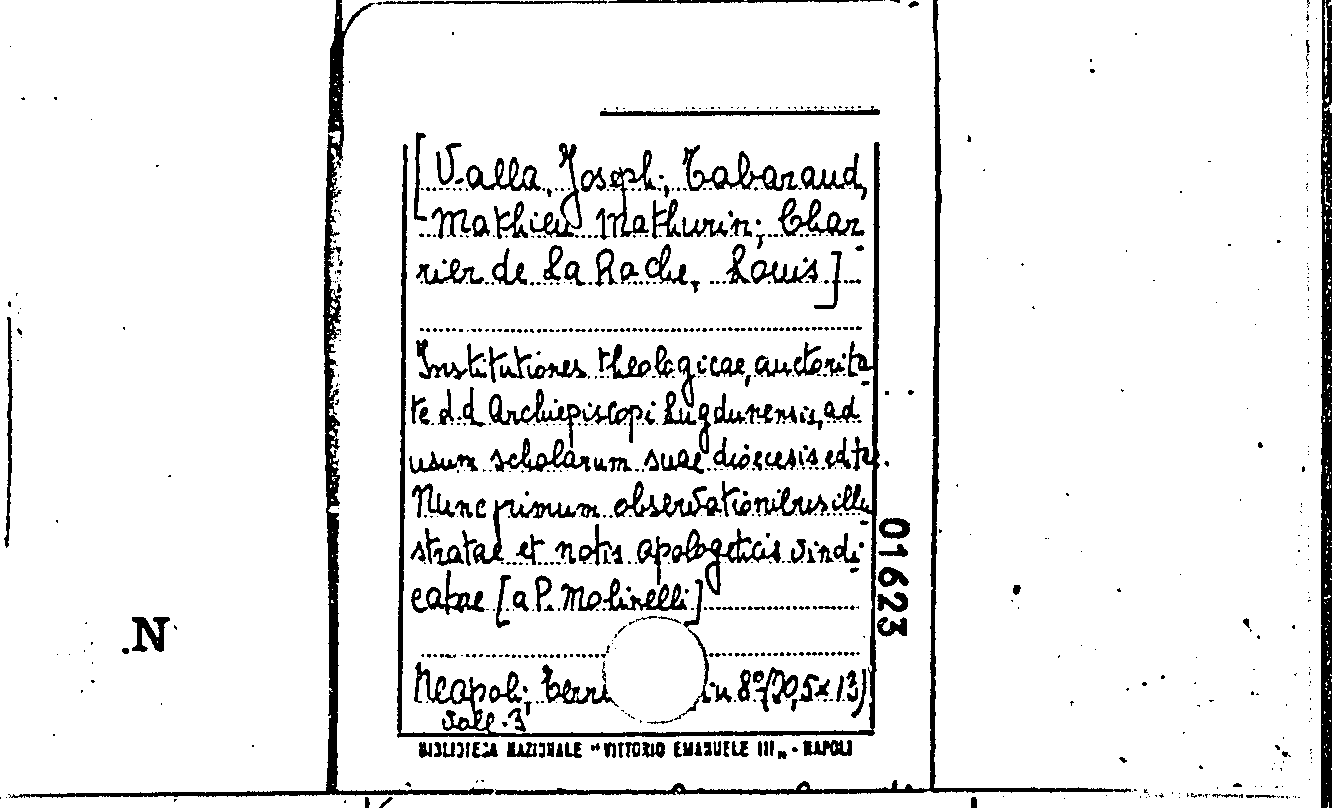 [Valla, Joseph; Tabaraud,
Mathieu Mathurin; Char-
rier de La Roche, Louis]
Institutiones theologicae, auctorita-
te d.d. Archiepiscopi Lugdunensis, ad
usum scholarum suae dioecesis editae.
Nunc primum observationibus illu-
stratae et notis apologeticis vindi-
catae [a P. Molinelli]
Neapoli; in 8° (20,5x13)
voll. 3
BIBLIOTECA NAZIONALE "VITTORIO EMANUELE III" - NAPOLI
01623
.N